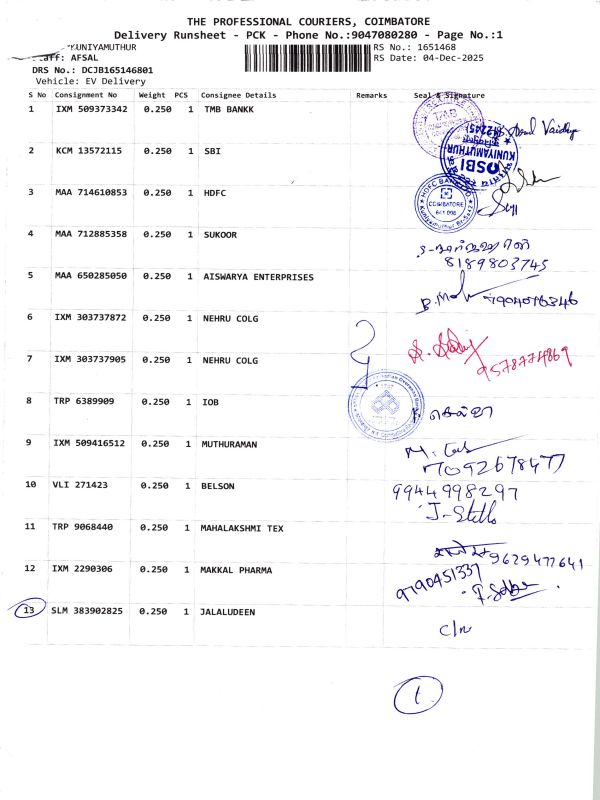 THE PROFESSIONAL COURIERS, COIMBATORE
Delivery Runsheet - PCK - Phone No.:9047080280 - Page No.:1
KUNIYAMUTHUR
RS No.: 1651468
AFSAL
RS Date: 04-Dec-2025
DRS No.: DCJB165146801
Vehicle: EV Delivery
S No Consignment No Weight PCS Consignee Details Remarks Seal & Signature
1 IXM 509373342 0.250 1 TMB BANKK
2 KCM 13572115 0.250 1 SBI
SBI
KUNIYAMUTHUR
3 MAA 714610853 0.250 1 HDFC
HDFC BANK
COIMBATORE
4 MAA 712885358 0.250 1 SUKOOR
8189803745
5 MAA 650285050 0.250 1 AISWARYA ENTERPRISES
7904016346
6 IXM 303737872 0.250 1 NEHRU COLG
7 IXM 303737905 0.250 1 NEHRU COLG
9578774869
8 TRP 6389909 0.250 1 IOB
9 IXM 509416512 0.250 1 MUTHURAMAN
7092678477
10 VLI 271423 0.250 1 BELSON
9944998297
11 TRP 9068440 0.250 1 MAHALAKSHMI TEX
9629477641
12 IXM 2290306 0.250 1 MAKKAL PHARMA
9790451337
13 SLM 383902825 0.250 1 JALALUDEEN
1